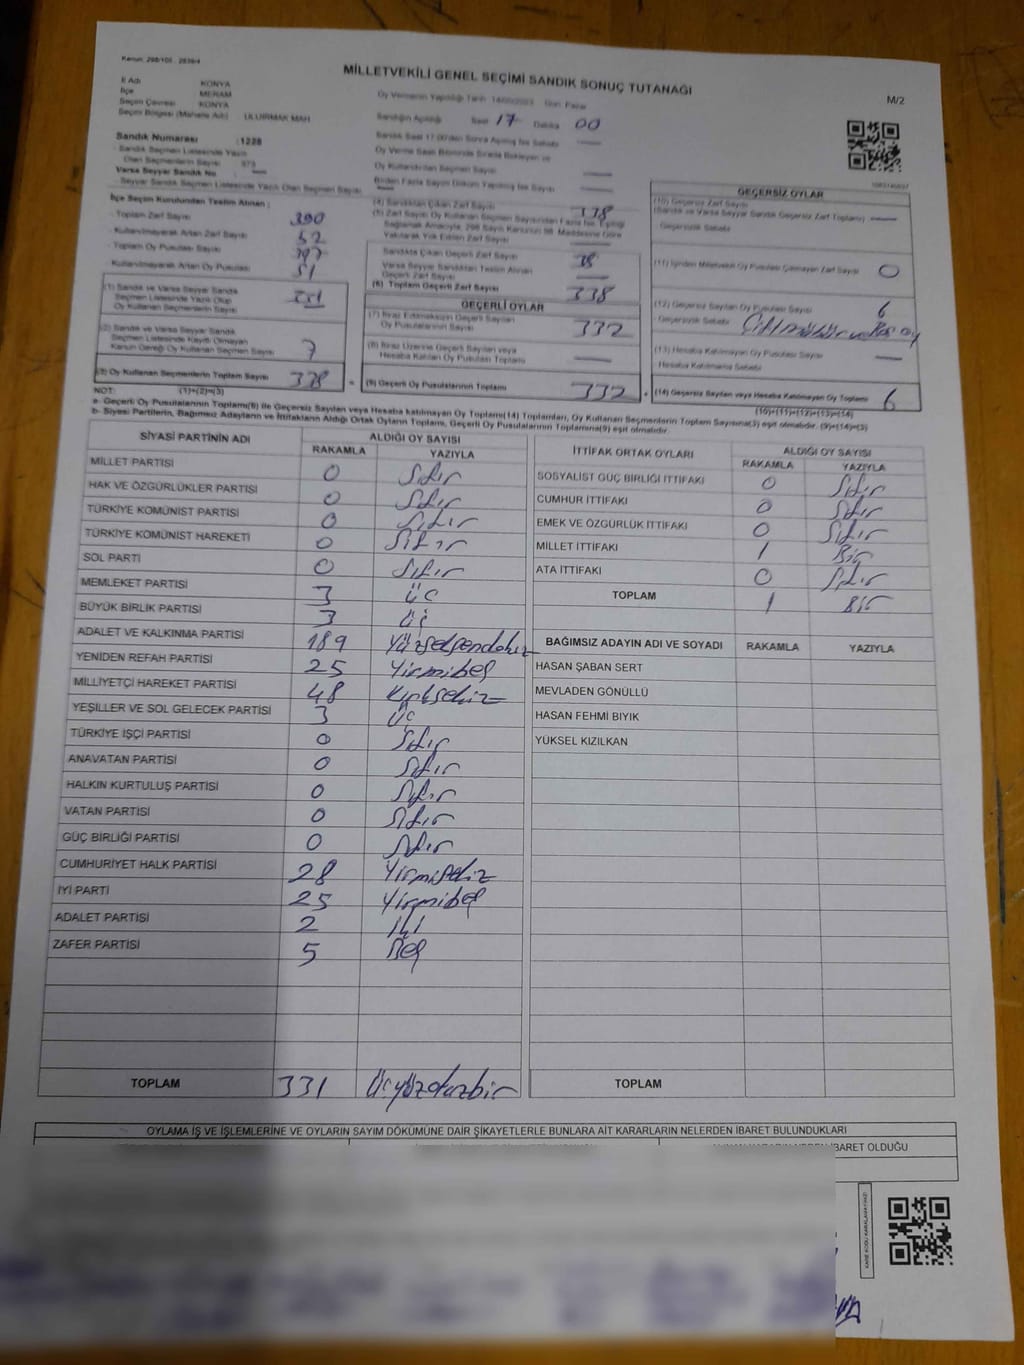 Kanun: 298/105 - 2839/4
MİLLETVEKİLİ GENEL SEÇİMİ SANDIK SONUÇ TUTANAĞI
M/2
İl Adı KONYA
İlçe MERAM
Seçim Çevresi KONYA
Seçim Bölgesi (Mahalle Adı) ULUIRMAK MAH
Oy Vermenin Yapıldığı Tarih 14/05/2023 Gün Pazar
Sandığın Açıldığı Saat 17 Dakika 00
Sandık Numarası :1228
Sandık Seçmen Listesinde Yazılı
Olan Seçmenlerin Sayısı
Varsa Seyyar Sandık No
Seyyar Sandık Seçmen Listesinde Yazılı Olan Seçmenlerin Sayısı
Sandık Saat 17.00'den Sonra Açılmış İse Sebebi
Oy Verme Saati Bitiminde Sırada Bekleyen ve
Oy Kullandırılan Seçmen Sayısı
Birden Fazla Sayım Döküm Yapılmış İse Sayısı
İlçe Seçim Kurulundan Teslim Alınan ;
Toplam Zarf Sayısı 390
Kullanılmayarak Artan Zarf Sayısı 52
Toplam Oy Pusulası Sayısı
Kullanılmayarak Artan Oy Pusulası 51
(1) Sandık ve Varsa Seyyar Sandık
Seçmen Listesinde Yazılı Olup
Oy Kullanan Seçmenlerin Sayısı
(2) Sandık ve Varsa Seyyar Sandık
Seçmen Listesinde Kayıtlı Olmayan
Kanun Gereği Oy Kullanan Seçmen Sayısı 7
(3) Oy Kullanan Seçmenlerin Toplam Sayısı
(4) Sandıktan Çıkan Zarf Sayısı 338
(5) Zarf Sayısı Oy Kullanan Seçmen Sayısından Fazla İse, Eşitliği
Sağlamak Amacıyla, 298 Sayılı Kanunun 98. Maddesine Göre
Yakılarak Yok Edilen Zarf Sayısı
Sandıkta Çıkan Geçerli Zarf Sayısı
Varsa Seyyar Sandıktan Teslim Alınan
Geçerli Zarf Sayısı
(6) Toplam Geçerli Zarf Sayısı 338
GEÇERLİ OYLAR
(7) İtiraz Edilmeksizin Geçerli Sayılan
Oy Pusulalarının Sayısı 332
(8) İtiraz Üzerine Geçerli Sayılan veya
Hesaba Katılan Oy Pusulası Toplamı
(9) Geçerli Oy Pusulalarının Toplamı 332
GEÇERSİZ OYLAR
(10) Geçersiz Zarf Sayısı
(Sandık ve Varsa Seyyar Sandık Geçersiz Zarf Toplamı)
Geçersizlik Sebebi
(11) İçinden Milletvekili Oy Pusulası Çıkmayan Zarf Sayısı 0
(12) Geçersiz Sayılan Oy Pusulası Sayısı 6
Geçersizlik Sebebi
(13) Hesaba Katılmayan Oy Pusulası Sayısı
Hesaba Katılmama Sebebi
(14) Geçersiz Sayılan veya Hesaba Katılmayan Oy Toplamı 6
NOT: (1)+(2)=(3) (10)+(11)+(12)+(13)=(14)
a- Geçerli Oy Pusulalarının Toplamı(9) ile Geçersiz Sayılan veya Hesaba katılmayan Oy Toplamı(14) Toplamları, Oy Kullanan Seçmenlerin Toplam Sayısına(3) eşit olmalıdır. (9)+(14)=(3)
b- Siyasi Partilerin, Bağımsız Adayların ve İttifakların Aldığı Ortak Oyların Toplamı, Geçerli Oy Pusulalarının Toplamına(9) eşit olmalıdır.
SİYASİ PARTİNİN ADI ALDIĞI OY SAYISI
RAKAMLA YAZIYLA
MİLLET PARTİSİ 0 Sıfır
HAK VE ÖZGÜRLÜKLER PARTİSİ 0 Sıfır
TÜRKİYE KOMÜNİST PARTİSİ 0 Sıfır
TÜRKİYE KOMÜNİST HAREKETİ 0 Sıfır
SOL PARTİ 0 Sıfır
MEMLEKET PARTİSİ 3 üç
BÜYÜK BİRLİK PARTİSİ 3 üç
ADALET VE KALKINMA PARTİSİ 189 Yüzseksendokuz
YENİDEN REFAH PARTİSİ 25 Yirmibeş
MİLLİYETÇİ HAREKET PARTİSİ 48 Kırksekiz
YEŞİLLER VE SOL GELECEK PARTİSİ 3 üç
TÜRKİYE İŞÇİ PARTİSİ 0 Sıfır
ANAVATAN PARTİSİ 0 Sıfır
HALKIN KURTULUŞ PARTİSİ 0 Sıfır
VATAN PARTİSİ 0 Sıfır
GÜÇ BİRLİĞİ PARTİSİ 0 Sıfır
CUMHURİYET HALK PARTİSİ 28 Yirmisekiz
İYİ PARTİ 25 Yirmibeş
ADALET PARTİSİ 2 İki
ZAFER PARTİSİ 5 Beş
TOPLAM 331 Üçyüzotuzbir
İTTİFAK ORTAK OYLARI ALDIĞI OY SAYISI
RAKAMLA YAZIYLA
SOSYALİST GÜÇ BİRLİĞİ İTTİFAKI 0 Sıfır
CUMHUR İTTİFAKI 0 Sıfır
EMEK VE ÖZGÜRLÜK İTTİFAKI 0 Sıfır
MİLLET İTTİFAKI 1 Bir
ATA İTTİFAKI 0 Sıfır
TOPLAM 1 Bir
BAĞIMSIZ ADAYIN ADI VE SOYADI RAKAMLA YAZIYLA
HASAN ŞABAN SERT
MEVLADEN GÖNÜLLÜ
HASAN FEHMİ BIYIK
YÜKSEL KIZILKAN
TOPLAM
OYLAMA İŞ VE İŞLEMLERİNE VE OYLARIN SAYIM DÖKÜMÜNE DAİR ŞİKAYETLERLE BUNLARA AİT KARARLARIN NELERDEN İBARET BULUNDUKLARI
İBARET OLDUĞU